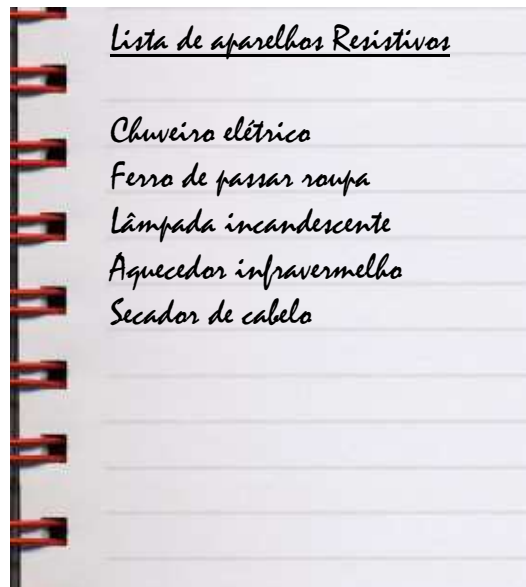 Lista de aparelhos Resistivos
Chuveiro elétrico
Ferro de passar roupa
Lâmpada incandescente
Aquecedor infravermelho
Secador de cabelo